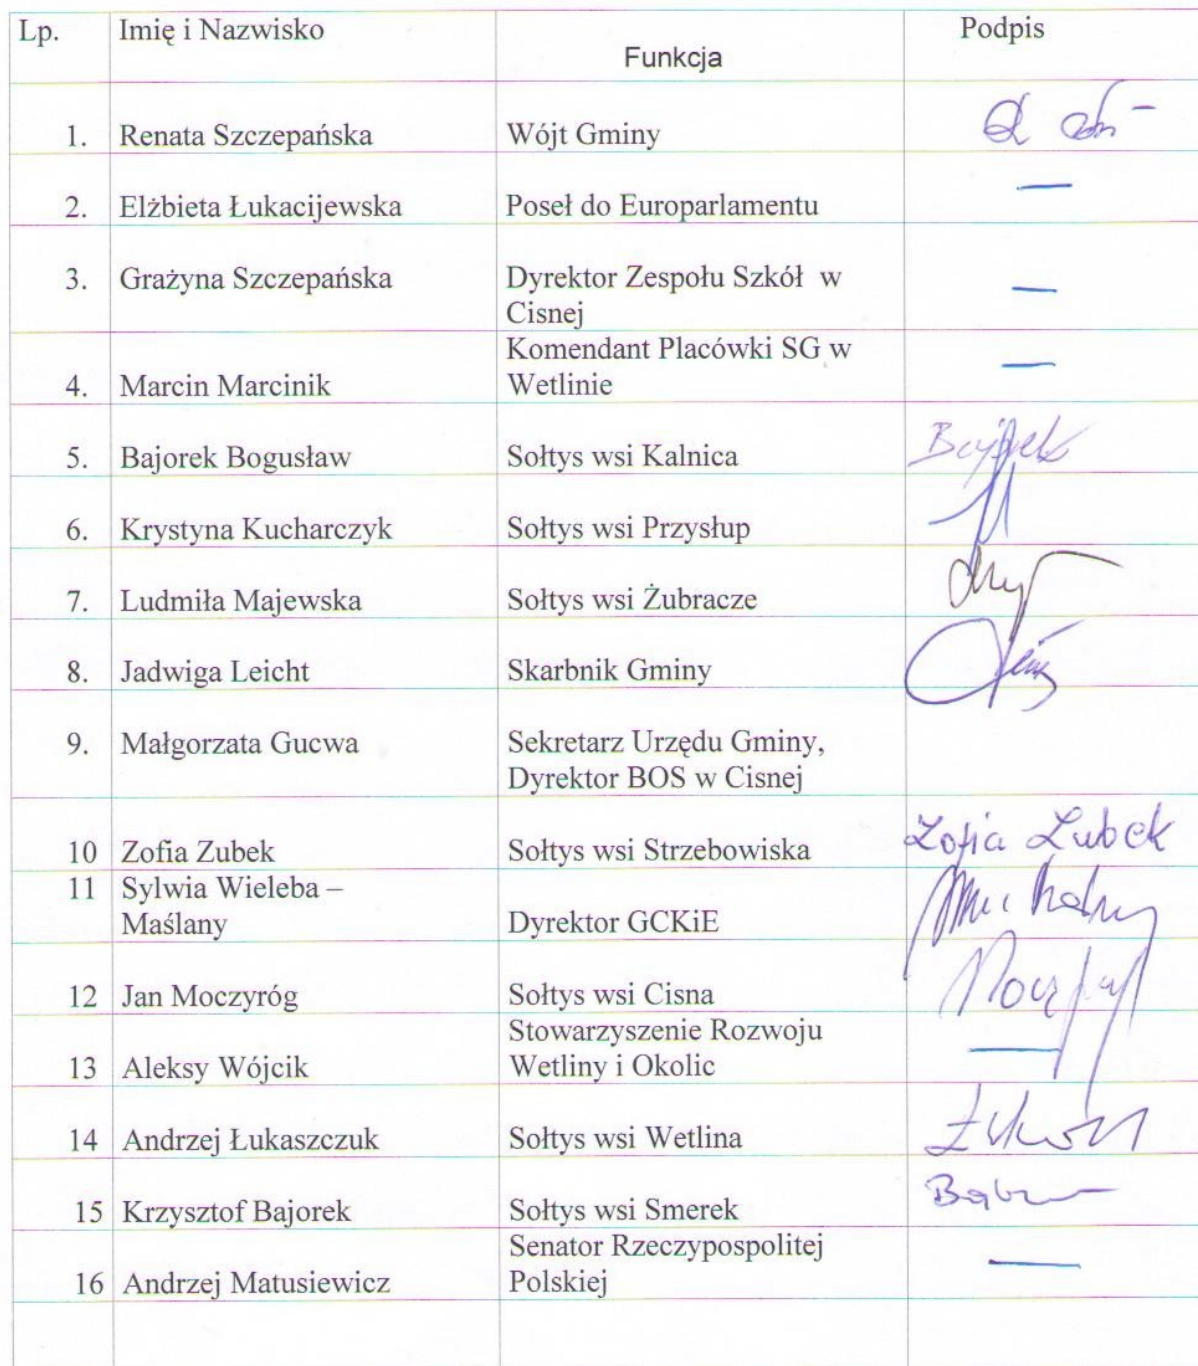 Lp. Imię i Nazwisko Funkcja Podpis
1. Renata Szczepańska Wójt Gminy
2. Elżbieta Łukacijewska Poseł do Europarlamentu —
3. Grażyna Szczepańska Dyrektor Zespołu Szkół w
Cisnej —
Komendant Placówki SG w
4. Marcin Marcinik Wetlinie —
5. Bajorek Bogusław Sołtys wsi Kalnica Bajorek
6. Krystyna Kucharczyk Sołtys wsi Przysłup
7. Ludmiła Majewska Sołtys wsi Żubracze
8. Jadwiga Leicht Skarbnik Gminy
9. Małgorzata Gucwa Sekretarz Urzędu Gminy,
Dyrektor BOS w Cisnej
10 Zofia Zubek Sołtys wsi Strzebowiska Zofia Zubek
11 Sylwia Wieleba –
Maślany Dyrektor GCKiE
12 Jan Moczyróg Sołtys wsi Cisna
Stowarzyszenie Rozwoju
13 Aleksy Wójcik Wetliny i Okolic —
14 Andrzej Łukaszczuk Sołtys wsi Wetlina
15 Krzysztof Bajorek Sołtys wsi Smerek
Senator Rzeczypospolitej
16 Andrzej Matusiewicz Polskiej —